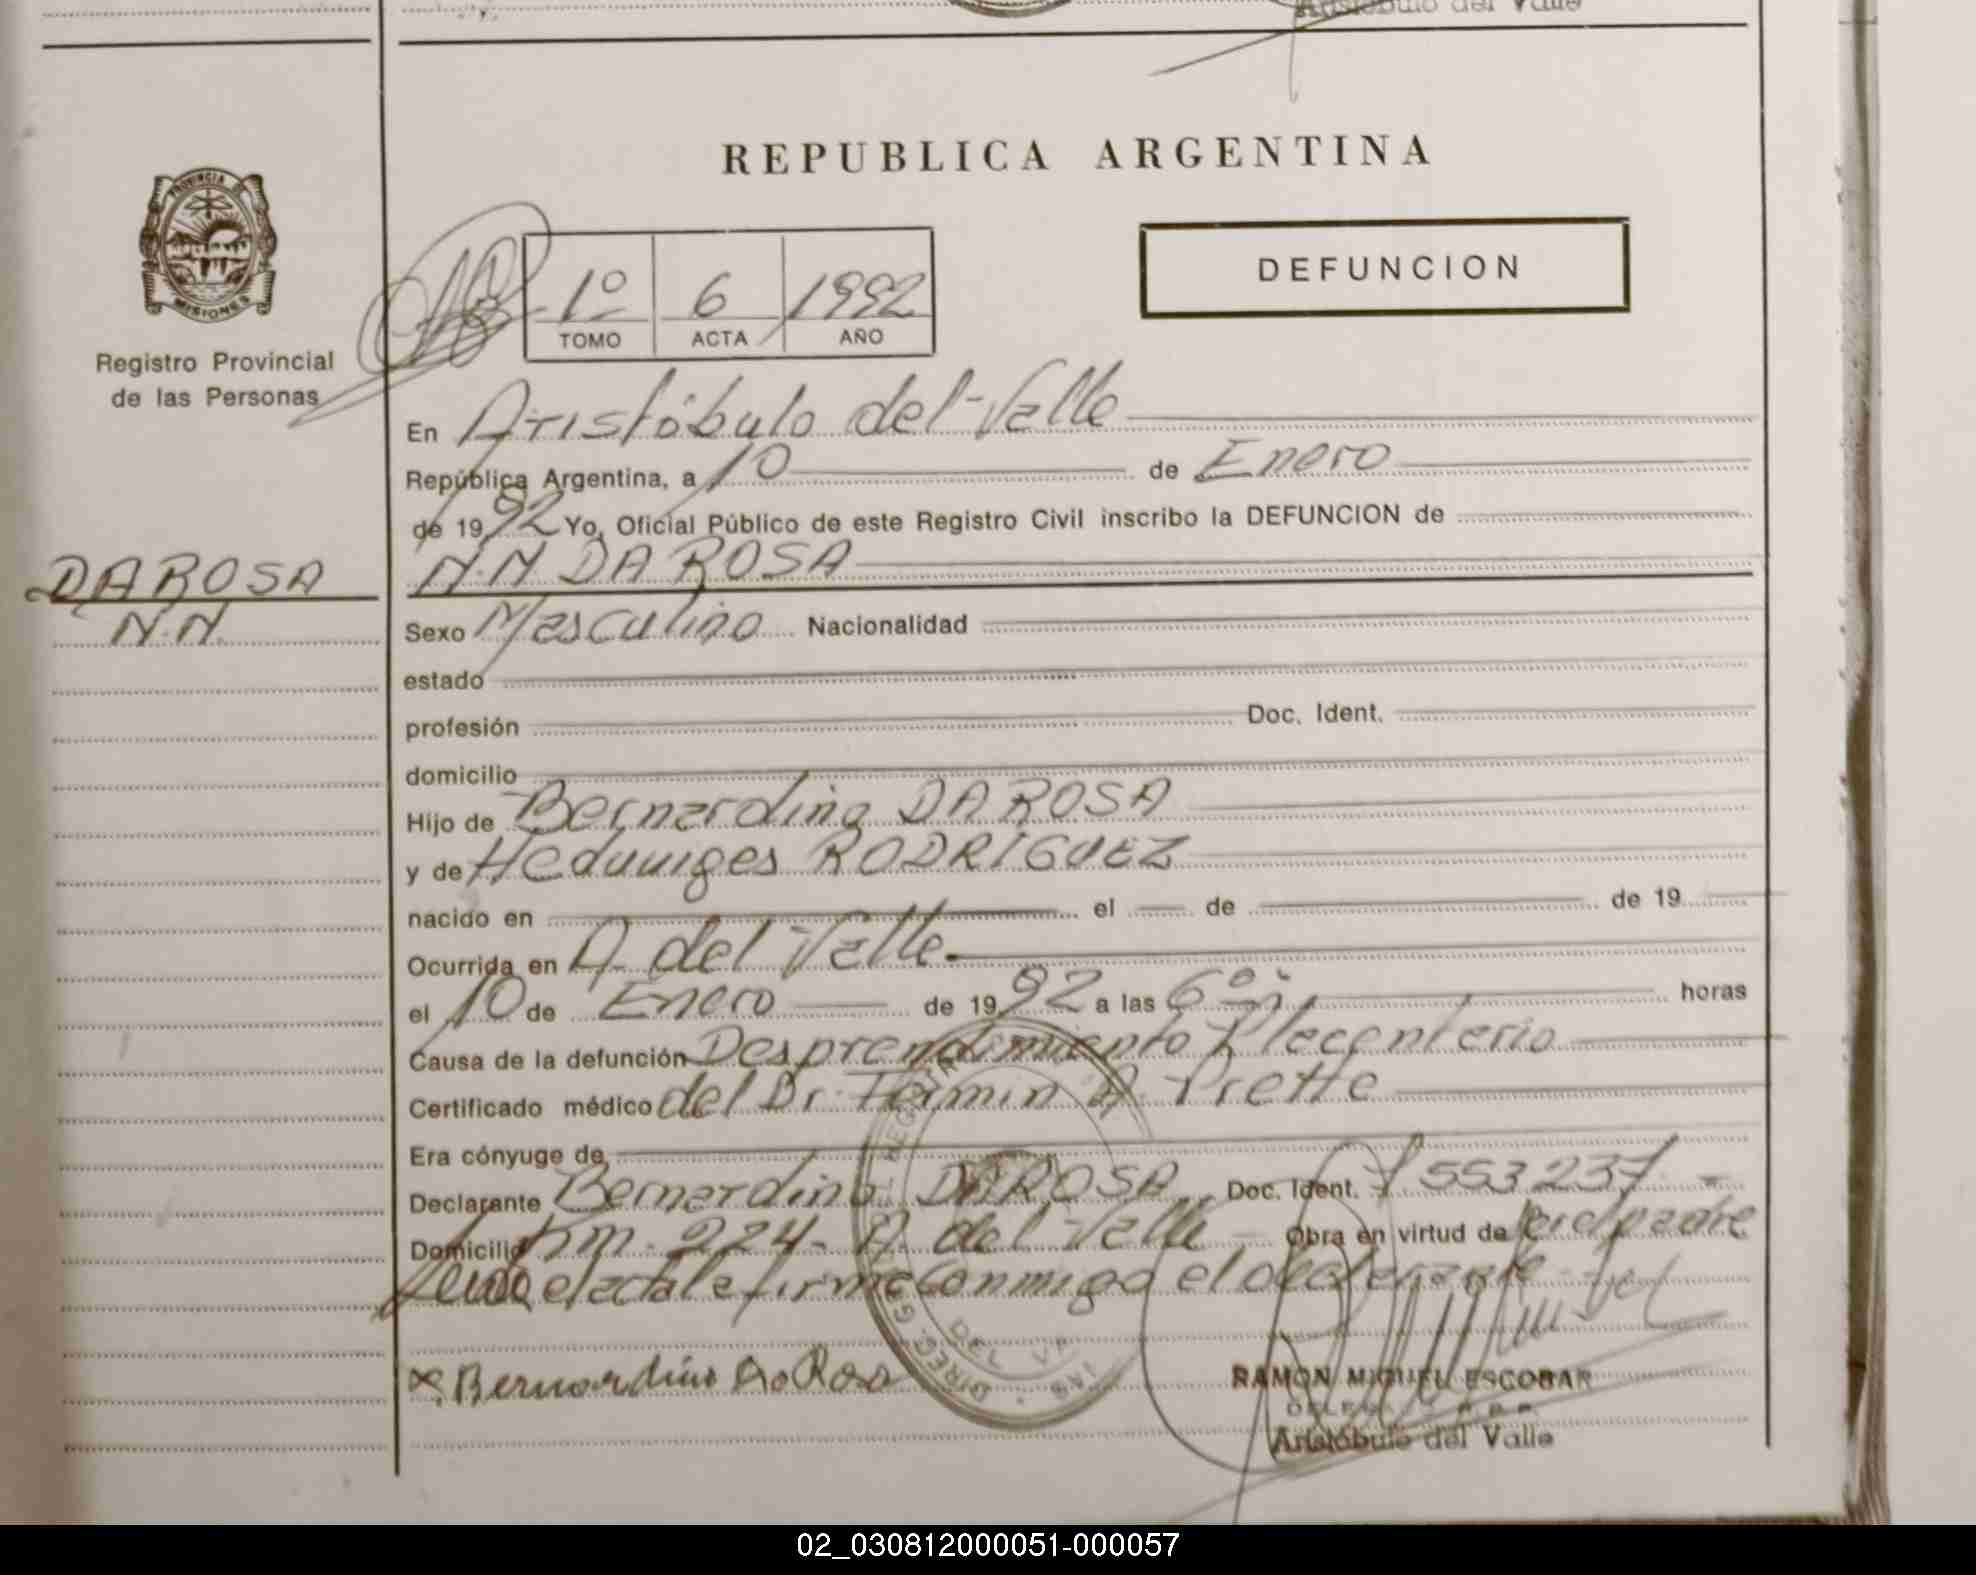 Aristóbulo del Valle
REPUBLICA ARGENTINA
PROVINCIA DE
MISIONES
Registro Provincial
de las Personas
1º 6 1992
TOMO ACTA AÑO
DEFUNCION
En Aristóbulo del Valle
República Argentina, a 10 de Enero
de 1992 Yo, Oficial Público de este Registro Civil inscribo la DEFUNCION de
DA ROSA
N.N.
N.N DA ROSA
Sexo Masculino Nacionalidad
estado
profesión Doc. Ident.
domicilio
Hijo de Bernardino DA ROSA
y de Heduuiges RODRIGUEZ
nacido en el de de 19
Ocurrida en A. del Valle
el 10 de Enero de 1992 a las 6 horas
Causa de la defunción Desprendimiento Placenterio
Certificado médico del Dr. Fermin A. Prette
Era cónyuge de
Declarante Bernardino DA ROSA Doc. Ident. 7553237
Domicilio Km. 224 - A. del Valle Obra en virtud de ser el padre
Leida el acta le firma Conmigo el declarante
x Bernardino Da Rosa
RAMON MIGUEL ESCOBAR
Aristóbulo del Valle
02_030812000051-000057